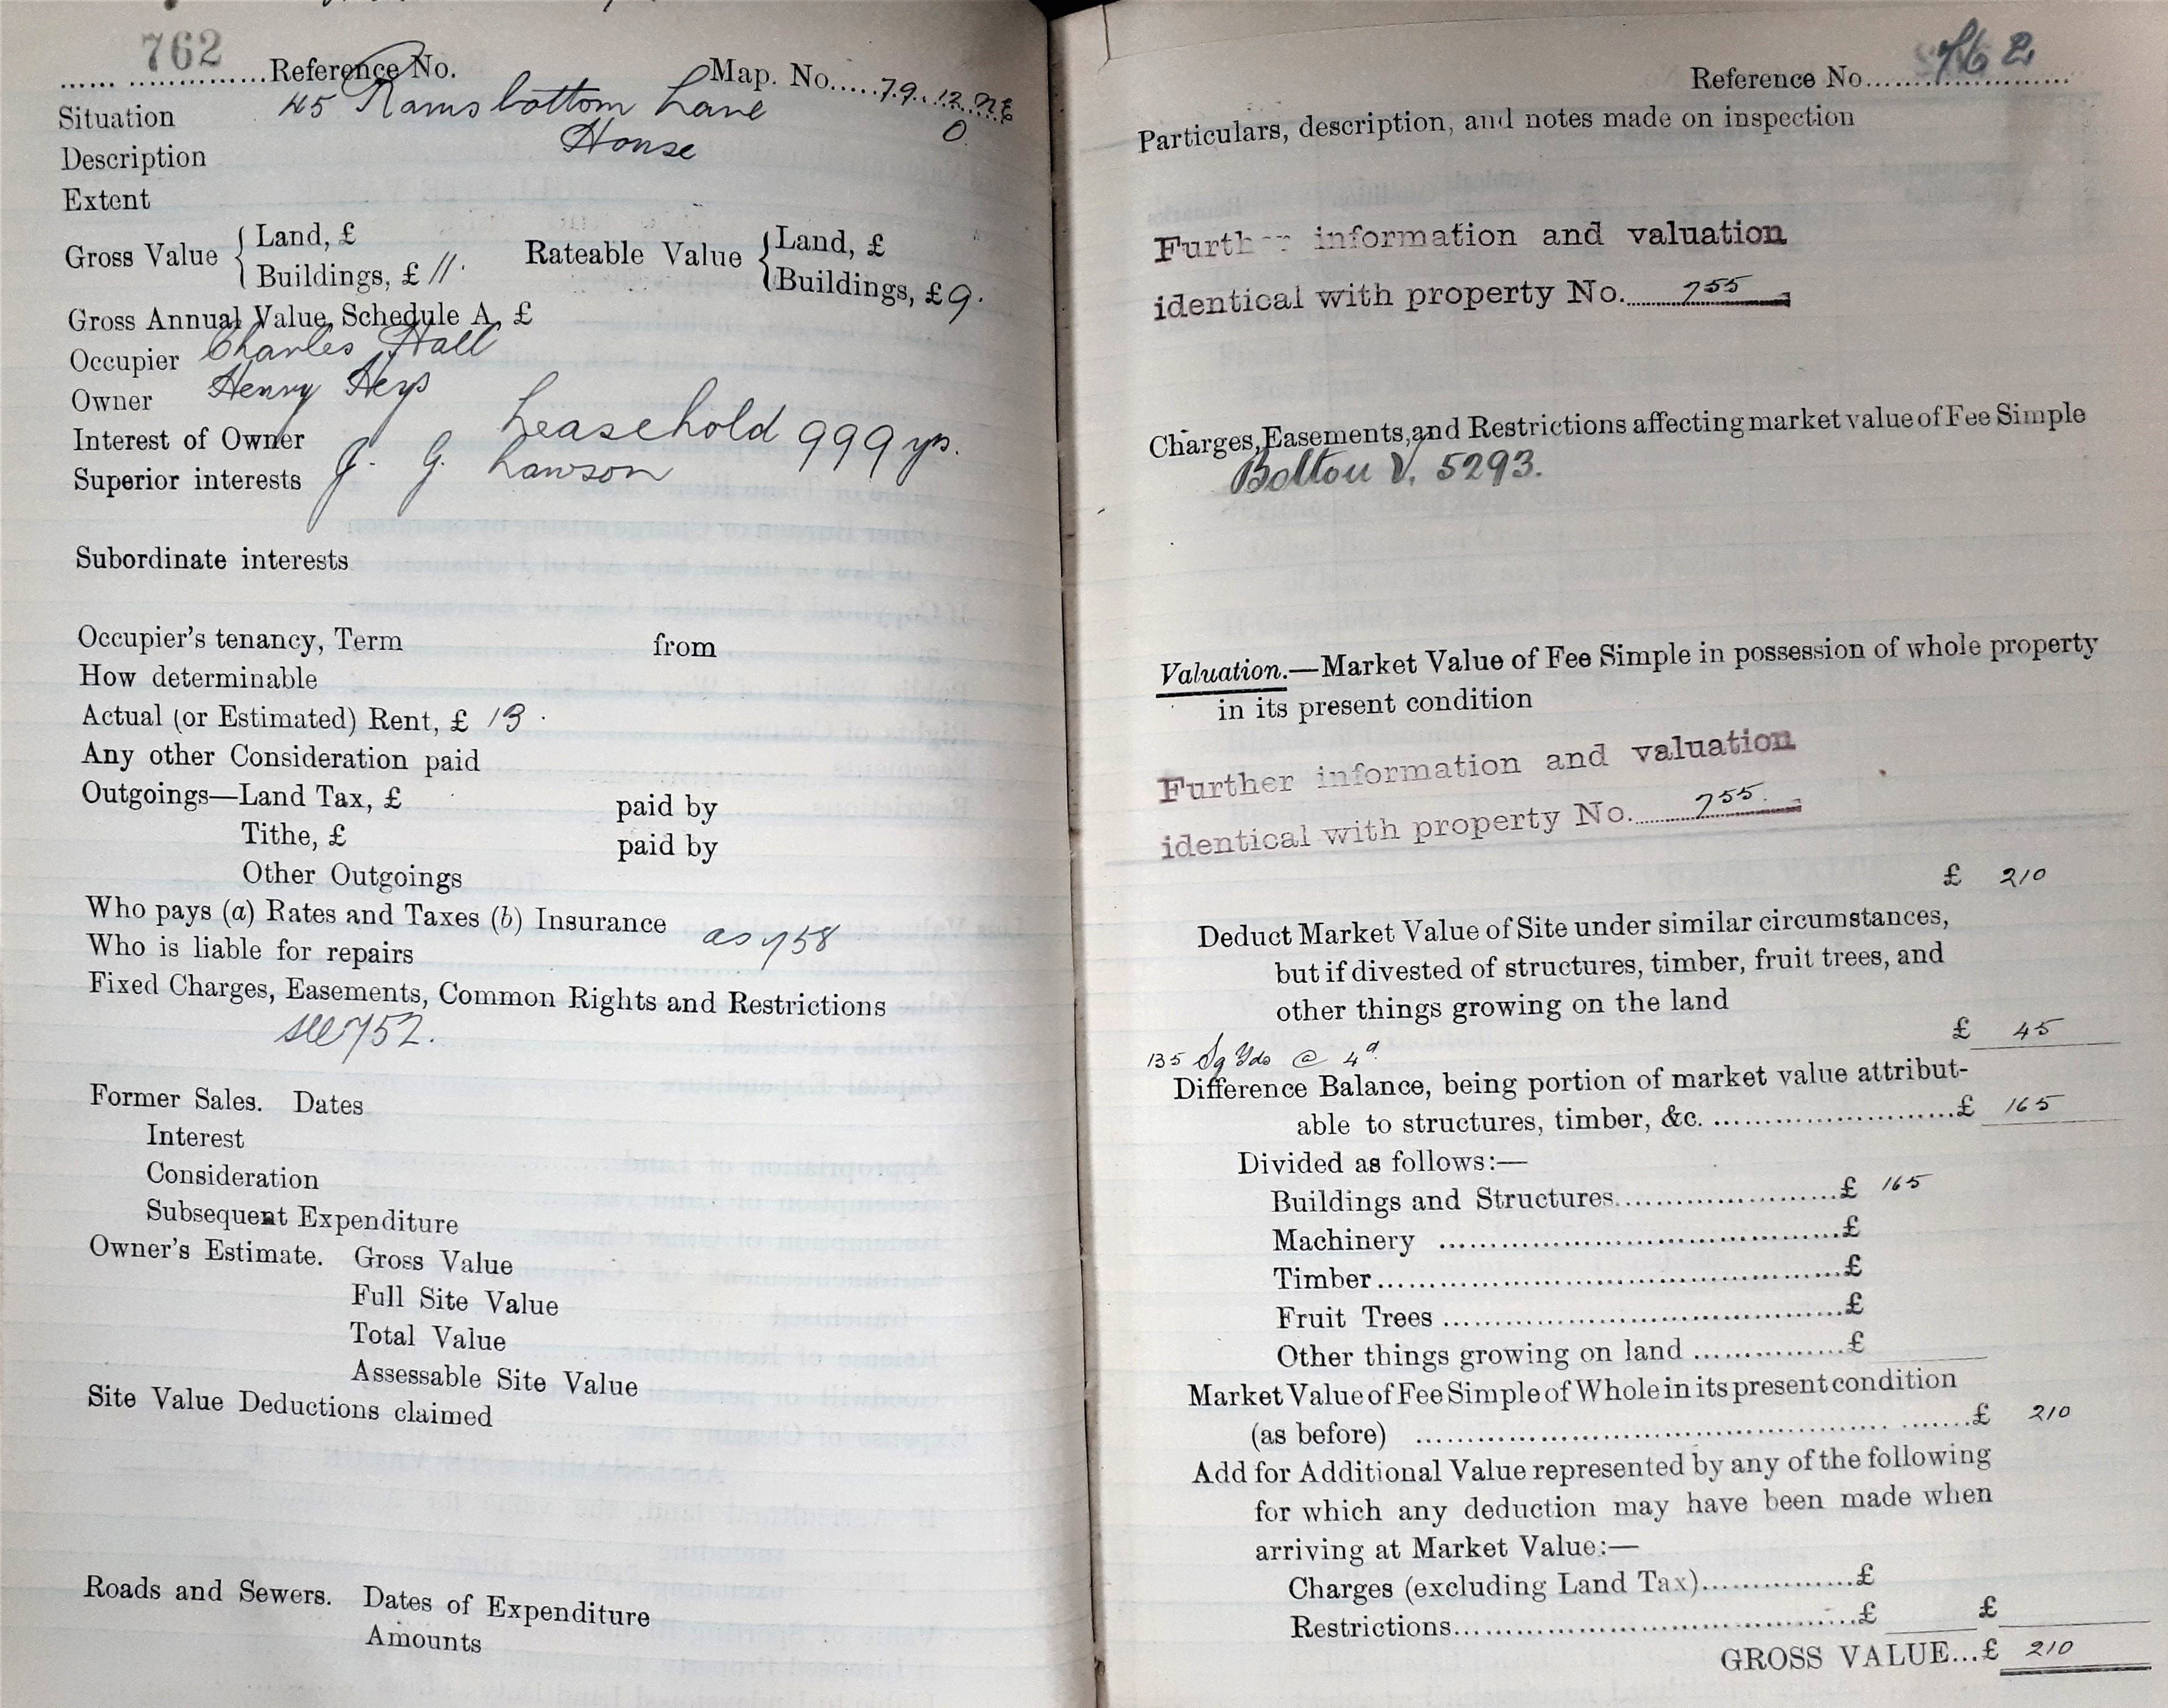 762
Reference No. Map. No. 79.12.
45 Ramsbottom Lane
Situation
House
Description
Extent
Gross Value { Land, £ Rateable Value { Land, £
Buildings, £ 11. Buildings, £ 9.
Gross Annual Value, Schedule A, £
Occupier Charles Hall
Owner Henry Heys
Interest of Owner Leasehold 999 yrs.
Superior interests J. G. Lawson
Subordinate interests
Occupier's tenancy, Term from
How determinable
Actual (or Estimated) Rent, £ 13.
Any other Consideration paid
Outgoings—Land Tax, £ paid by
Tithe, £ paid by
Other Outgoings
Who pays (a) Rates and Taxes (b) Insurance as 758
Who is liable for repairs
Fixed Charges, Easements, Common Rights and Restrictions
see 752.
Former Sales. Dates
Interest
Consideration
Subsequent Expenditure
Owner's Estimate. Gross Value
Full Site Value
Total Value
Assessable Site Value
Site Value Deductions claimed
Roads and Sewers. Dates of Expenditure
Amounts
Reference No. 762
Particulars, description, and notes made on inspection
Further information and valuation
identical with property No. 755
Charges, Easements, and Restrictions affecting market value of Fee Simple
Bolton V. 5293.
Valuation.—Market Value of Fee Simple in possession of whole property
in its present condition
Further information and valuation
identical with property No. 755.
£ 210
Deduct Market Value of Site under similar circumstances,
but if divested of structures, timber, fruit trees, and
other things growing on the land
£ 45
135 Sq Yds @ 4d
Difference Balance, being portion of market value attribut-
able to structures, timber, &c. £ 165
Divided as follows:—
Buildings and Structures £ 165
Machinery £
Timber £
Fruit Trees £
Other things growing on land £
Market Value of Fee Simple of Whole in its present condition
(as before) £ 210
Add for Additional Value represented by any of the following
for which any deduction may have been made when
arriving at Market Value:—
Charges (excluding Land Tax) £
Restrictions £ £
GROSS VALUE...£ 210